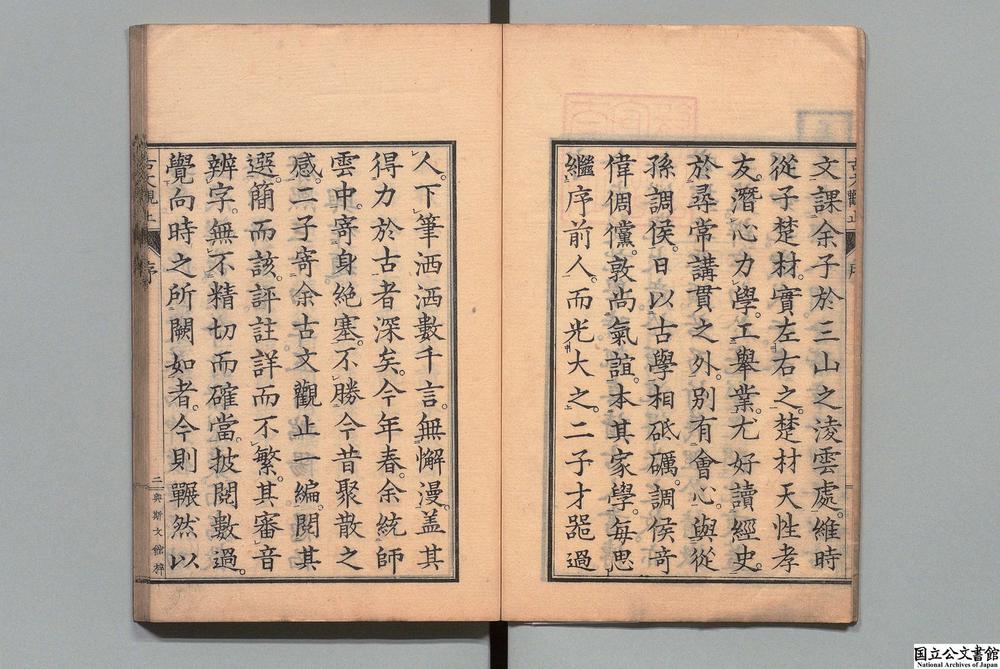 文課余子於三山之淩雲處。維時
從子楚材。實左右之。楚材天性孝
友。潛心力學。工舉業。尤好讀經史。
於尋常講貫之外。別有會心。與從
孫調侯。日以古學相砥礪。調侯奇
偉倜儻。敦尚氣誼。本其家學。每思
繼序前人。而光大之。二子才器過
人。下筆洒洒數千言。無懈漫。蓋其
得力於古者深矣。今年春。余統師
雲中。寄身絶塞。不勝今昔聚散之
感。二子寄余古文觀止一編。閱其
選。簡而該。評註詳而不繁。其審音
辨字。無不精切而確當。披閱數過。
覺向時之所闕如者。今則囅然以
古文觀止
序
二
奥斯文館梓
国立公文書館
National Archives of Japan